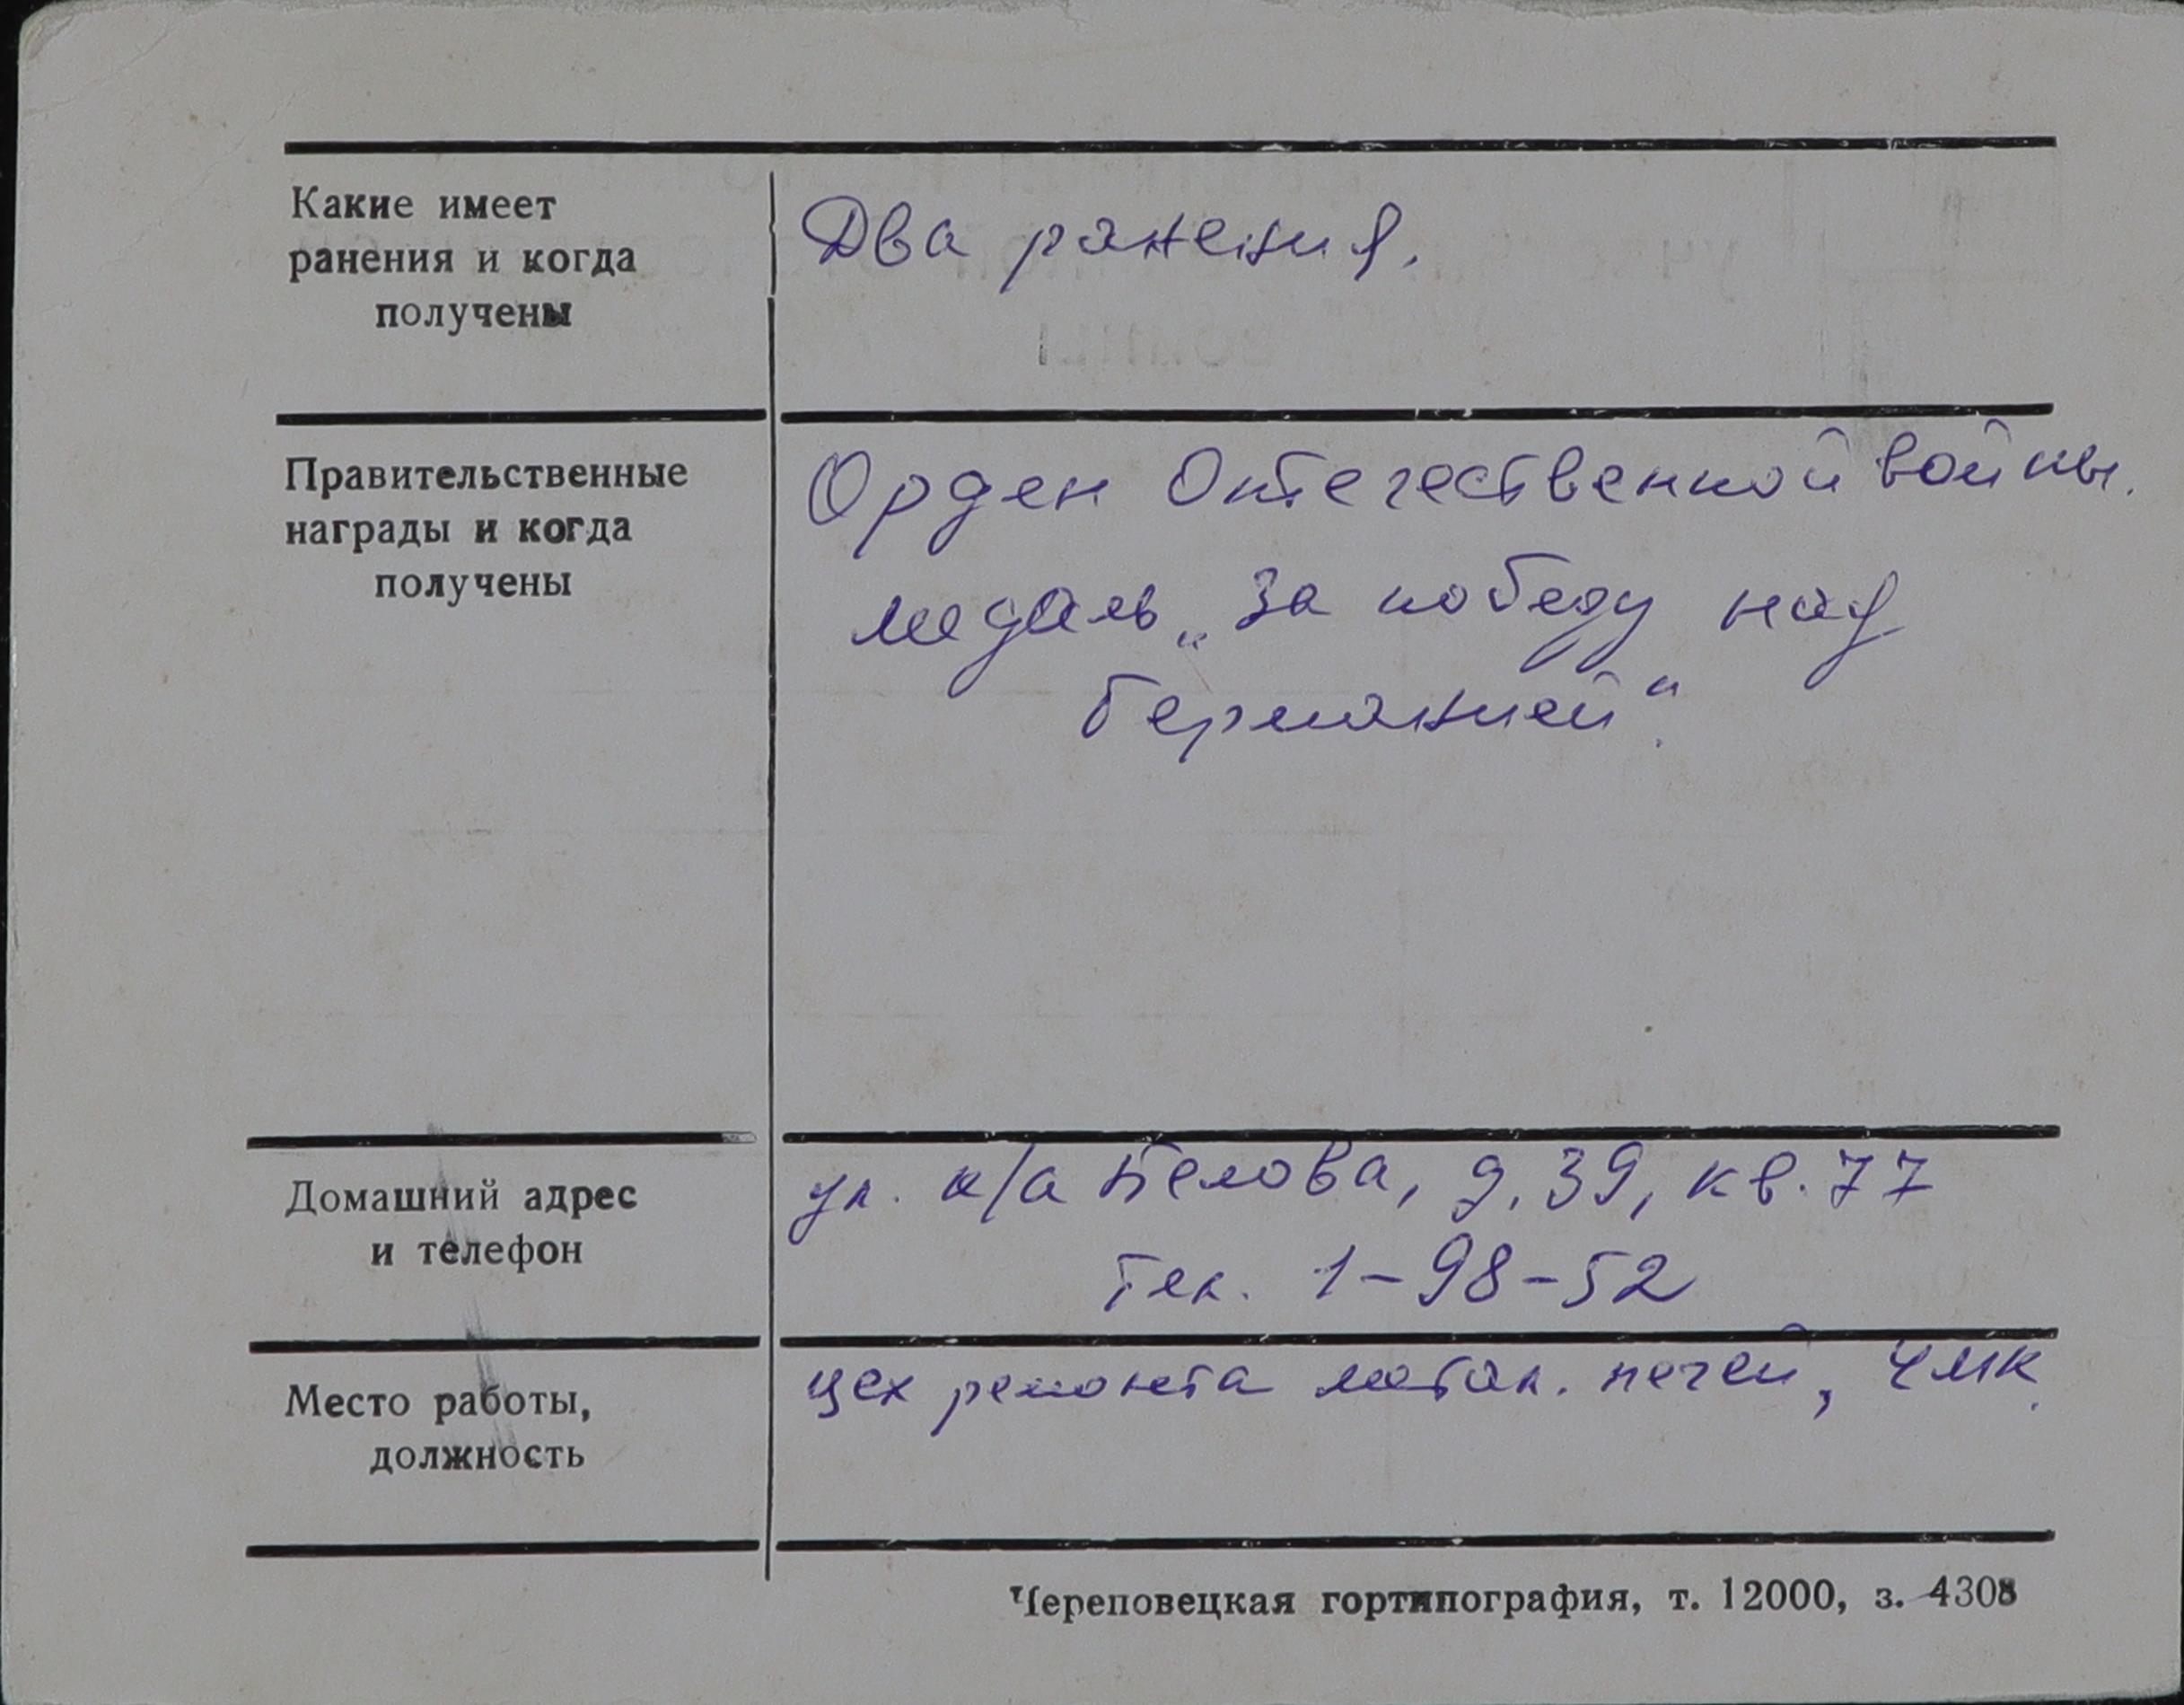 Какие имеет
ранения и когда
получены
Два ранения.
Правительственные
награды и когда
получены
Орден Отечественной войны.
медаль „За победу над
Германией".
Домашний адрес
и телефон
ул. к/а Белова, д. 39, кв. 77
Тел. 1-98-52
Место работы,
должность
цех ремонта метал. печей, ЧМК.
Череповецкая гортипография, т. 12000, з. 4308